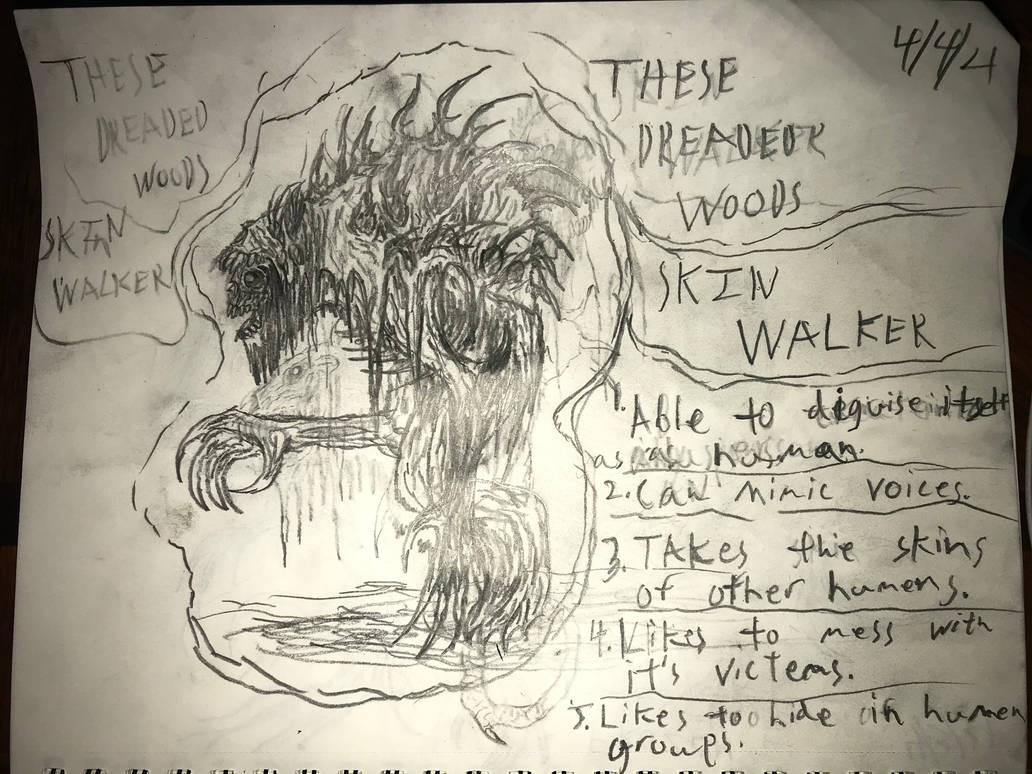 THESE
DREADED
WOODS
SKIN
WALKER
4/4/21
THESE
DREADED
WOODS
SKIN
WALKER
1. Able to diguise itself
as a human.
2. Can mimic voices.
3. TAKES the skins
of other humens.
4. Likes to mess with
it's victems.
5. Likes to hide in humen
groups.